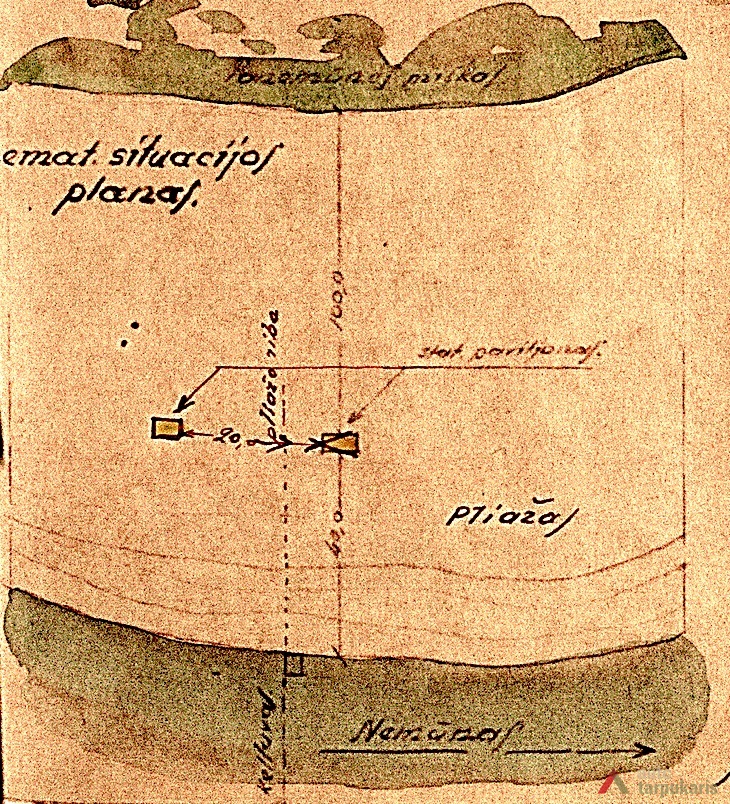 Panemunės miškas
emat. situacijos
planas.
100,0
pliažo riba
stat. paviljonas.
20,0
Pliažas
40,0
keltuvas
Nemūnas
tarpukaris